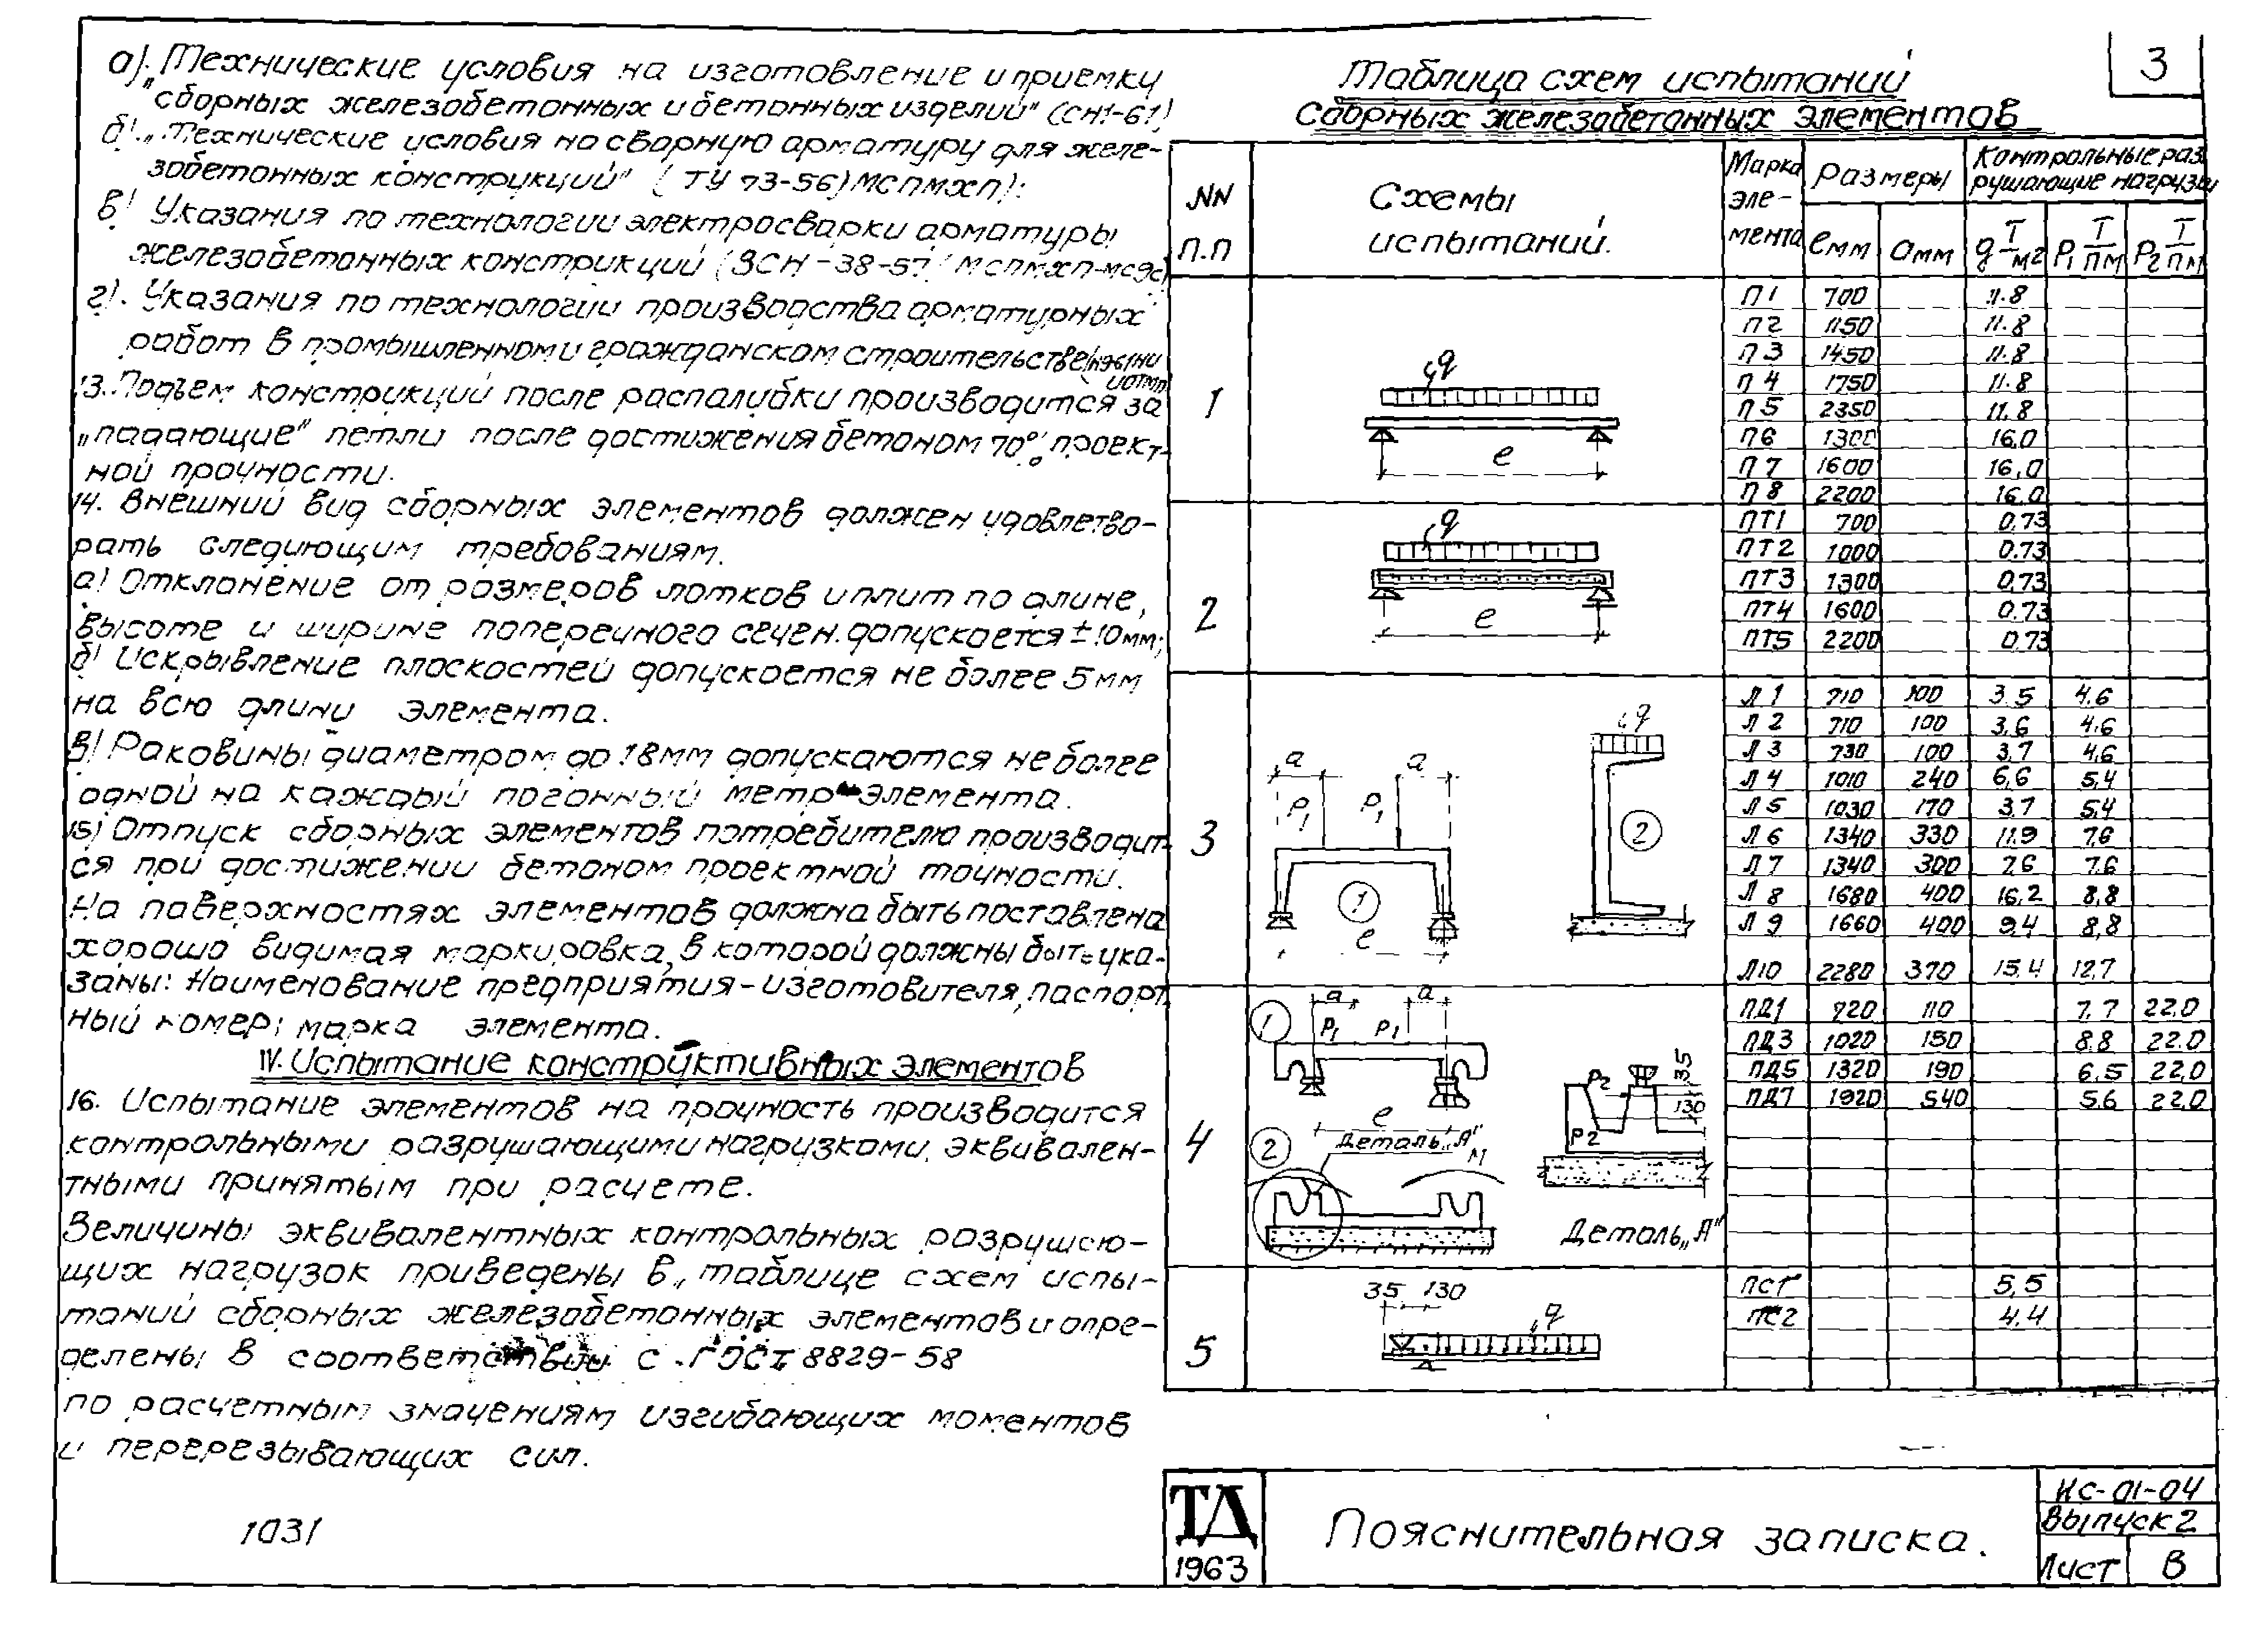 а). „Технические условия на изготовление и приемку
сборных железобетонных и бетонных изделий" (СН1-61)
б). „Технические условия на сварную арматуру для желе-
зобетонных конструкций" (ТУ 73-56) МСПМХП):
в) Указания по технологии электросварки арматуры
железобетонных конструкций (ВСН-38-57/МСПМХП-МСЭС)
г). Указания по технологии производства арматурных
работ в промышленном и гражданском строительстве
13. Подъем конструкций после распалубки производится за
„падающие" петли после достижения бетоном 70% проект-
ной прочности.
14. Внешний вид сборных элементов должен удовлетво-
рать следующим требованиям.
а) Отклонение от размеров лотков и плит по длине,
высоте и ширине поперечного сечен. допускается ±10мм;
б) Искрывление плоскостей допускается не более 5мм
на всю длину элемента.
в) Раковины диаметром до 18мм допускаются не более
одной на каждый погонный метр элемента.
15) Отпуск сборных элементов потребителю производит-
ся при достижении бетоном проектной точности.
На поверхностях элементов должна быть поставлена
хорошо видимая маркировка, в которой должны быть ука-
заны: Наименование предприятия-изготовителя, паспорт
ный номер; марка элемента.
IV. Испытание конструктивных элементов
16. Испытание элементов на прочность производится
контрольными разрушающими нагрузками, эквивален-
тными принятым при расчете.
Величины эквивалентных контрольных разрушаю-
щих нагрузок приведены в „таблице схем испы-
таний сборных железобетонных элементов и опре-
делены в соответствии с ГОСТ 8829-58
по расчетным значениям изгибающих моментов
и перерезывающих сил.
1031
3
Таблица схем испытаний
сборных железобетонных элементов
NN п.п | Схемы испытаний. | Марка элемента | Размеры | Контрольные разрушающие нагрузки
ℓмм | aмм | q Т/м2 | P1 Т/пм | P2 Т/пм
1
q
ℓ
П1 700 11.8
П2 1150 11.8
П3 1450 11.8
П4 1750 11.8
П5 2350 11.8
П6 1300 16.0
П7 1600 16,0
П8 2200 16.0
2
q
ℓ
ПТ1 700 0,73
ПТ2 1000 0.73
ПТ3 1300 0,73
ПТ4 1600 0.73
ПТ5 2200 0.73
3
a a q
P1 P1
1 2
ℓ
Л1 710 100 3.5 4.6
Л2 710 100 3,6 4.6
Л3 730 100 3.7 4,6
Л4 1010 240 6,6 5,4
Л5 1030 170 3.7 5.4
Л6 1340 330 11.9 7.6
Л7 1340 300 7.6 7.6
Л8 1680 400 16,2 8,8
Л9 1660 400 9,4 8,8
Л10 2280 370 15.4 12,7
4
1 a a
P1 P1
ℓ
2 Деталь „А" М
P2 35
130
P2
Деталь „А"
ПД1 720 110 7.7 22.0
ПД3 1020 150 8.8 22.0
ПД5 1320 190 6,5 22,0
ПД7 1920 540 5.6 22.0
5
35 130
q
ПС1 5,5
ПС2 4.4
ТД
1963
Пояснительная записка.
ИС-01-04
Выпуск 2
Лист В